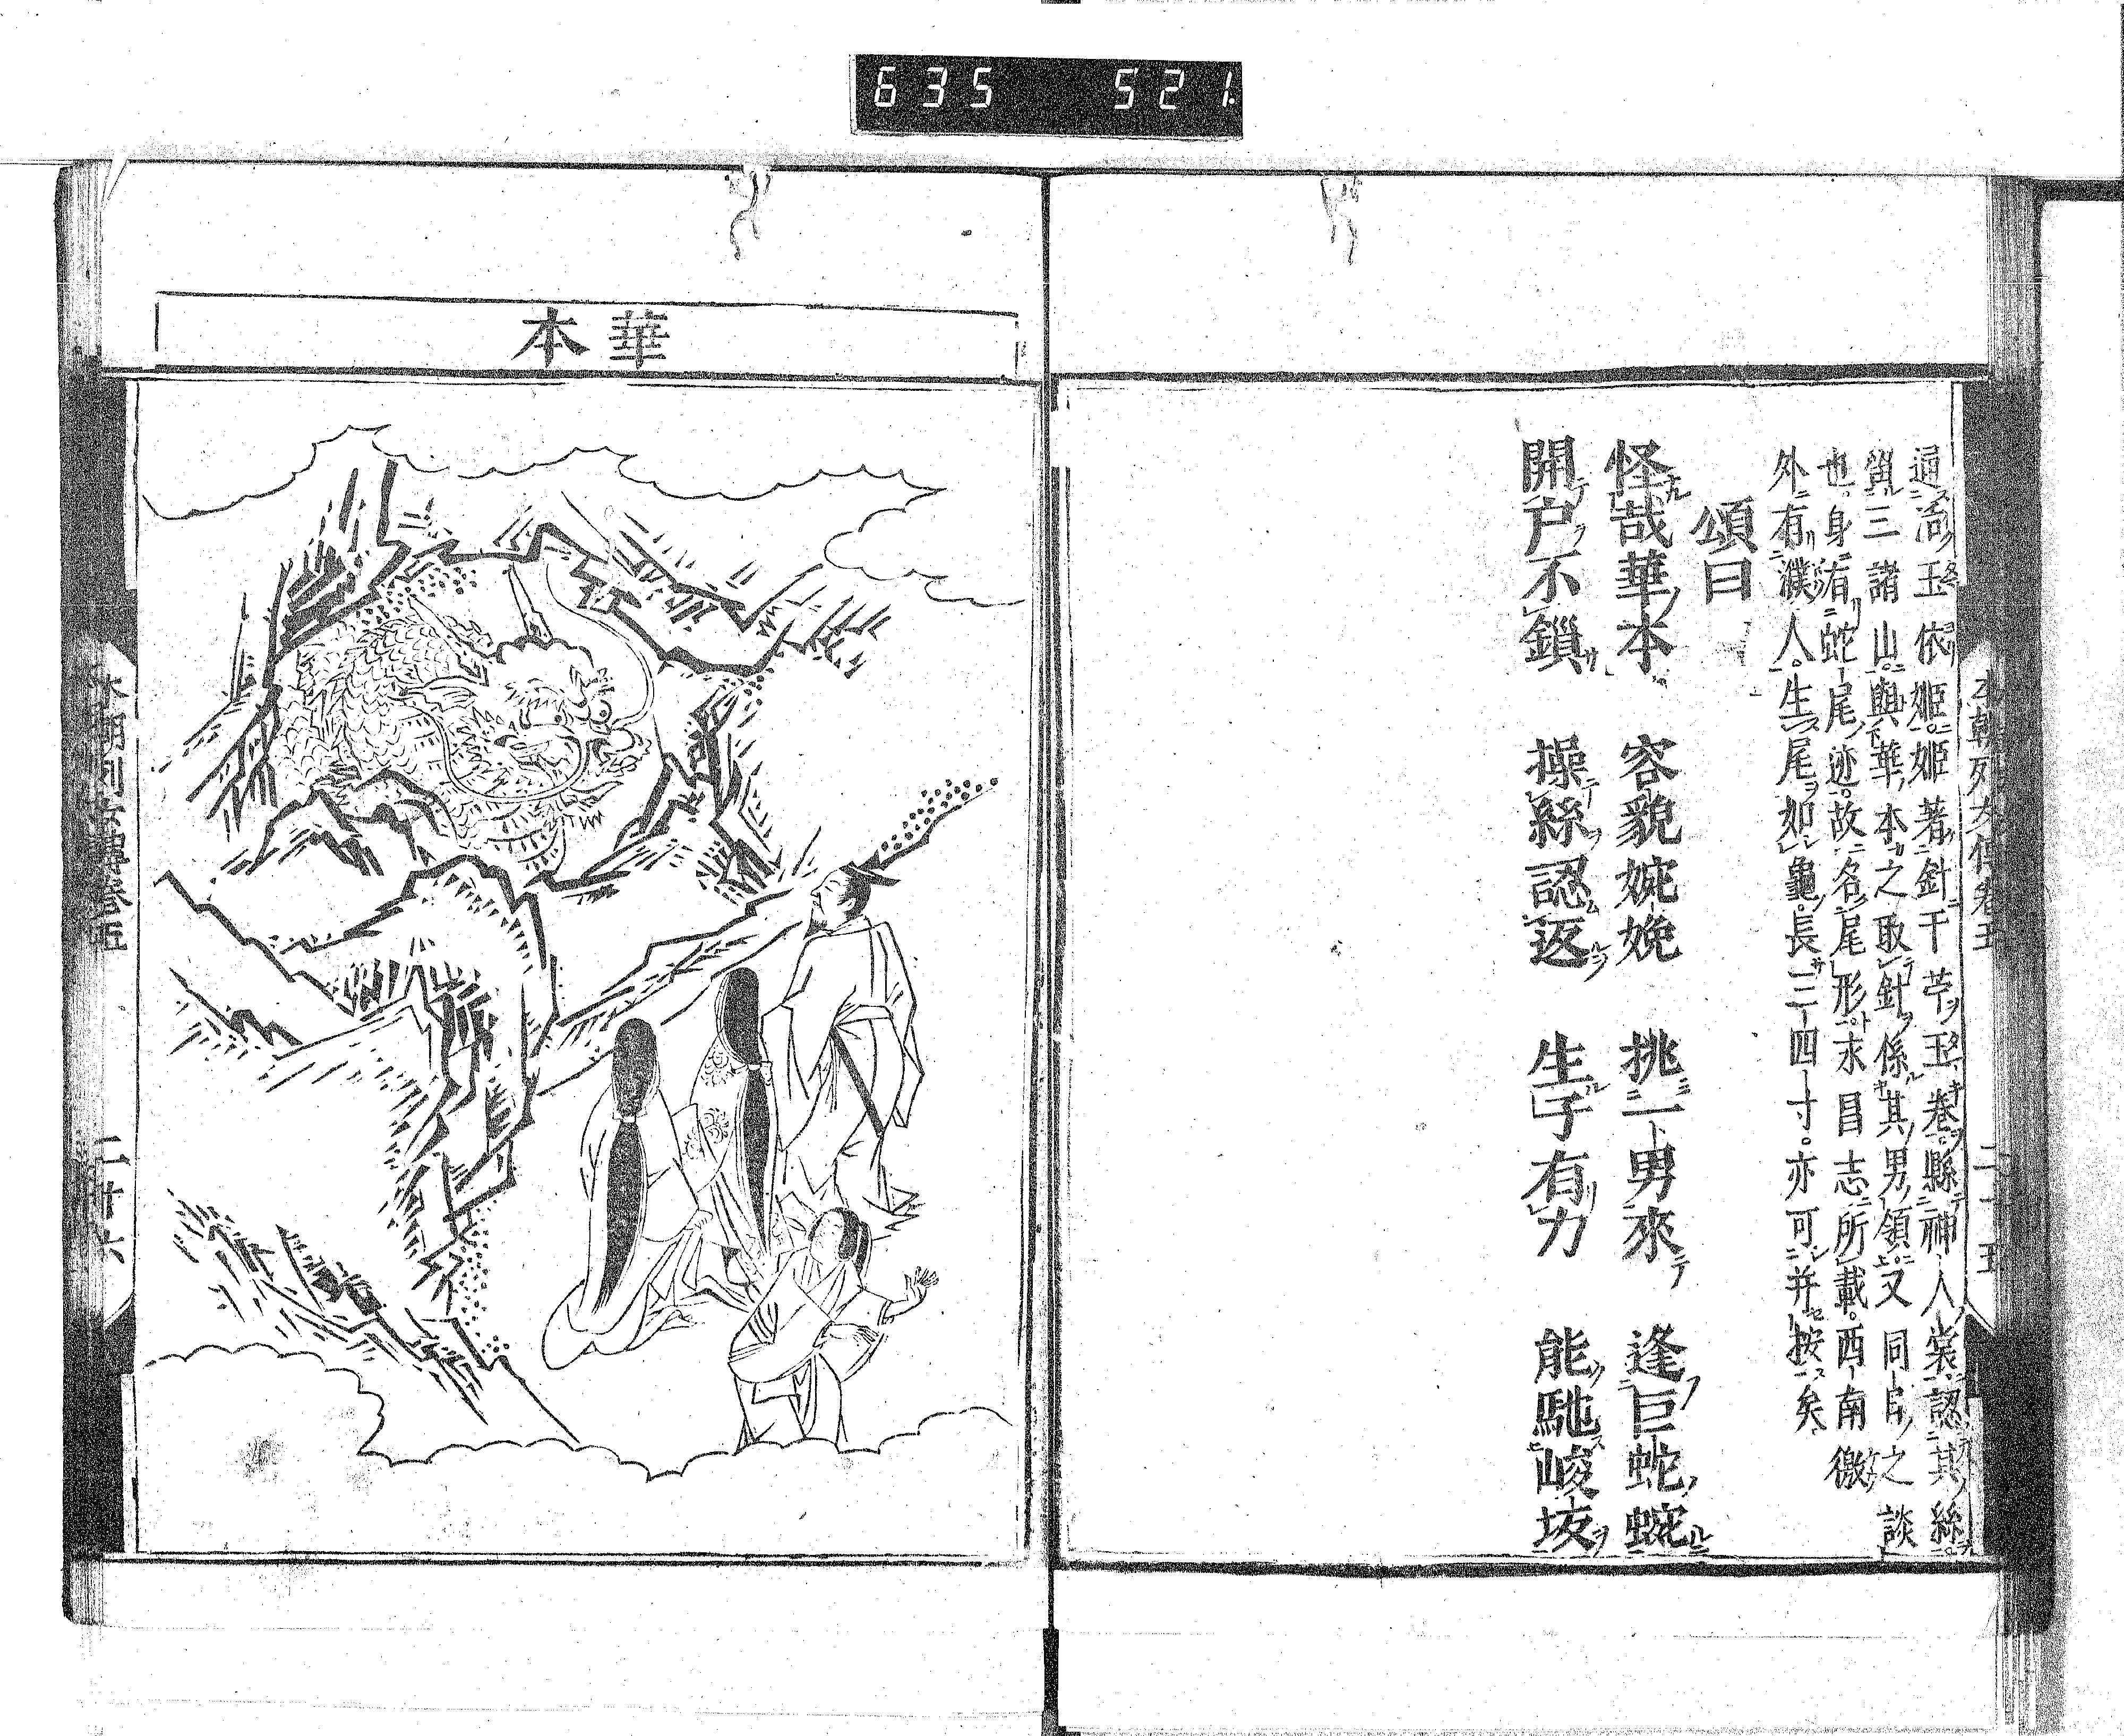 635 521
本朝列女傳卷五 二十五
通活玉依姫姫著針于苧玉巻縣神人裳認其絲
留三諸山與華本之取針係其男領又同日之談
也身有蛇尾迹故名尾形求昌志所載西南徼
外有濮人生尾如龜長三四寸亦可并按矣
頌曰
怪哉華本 容貌婉娩 挑一男來 逢巨蛇蜿
開户不鎖 操絲認返 生子有力 能馳峻坂
華本
本朝列女傳卷五 二十六